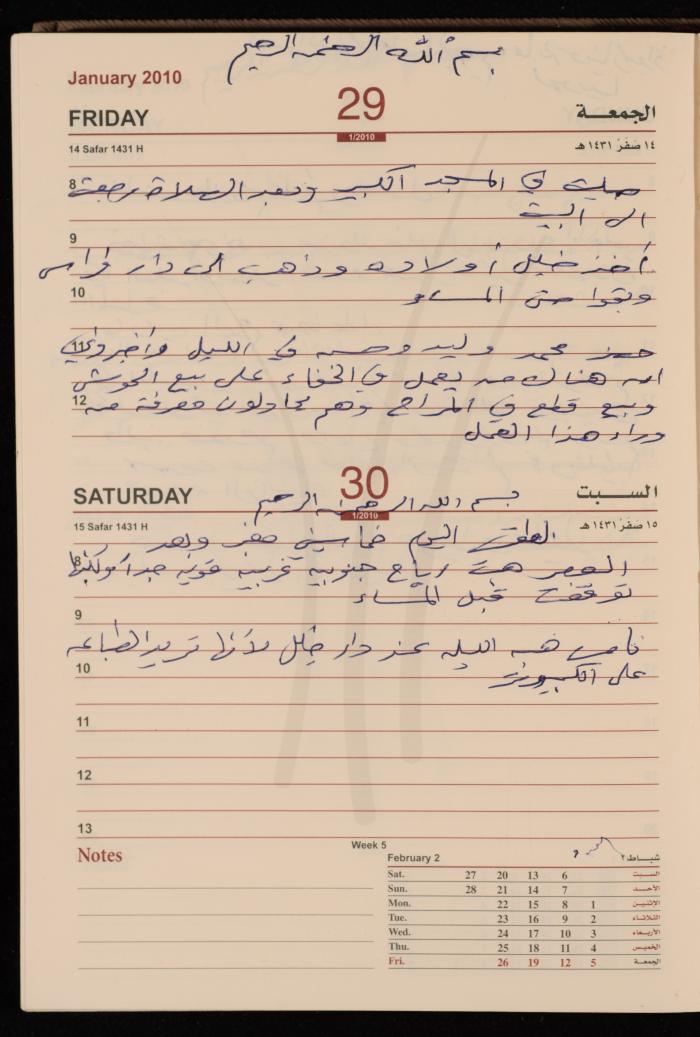 بسم الله الرحمن الرحيم
January 2010
FRIDAY 29 الجمعـــة
14 Safar 1431 H 1/2010 ١٤ صَفَرْ ١٤٣١ هـ
8 صليت في المسجد الكبير وبعد الصلاة رجعت
الى البيت
9
أخذ خليل أولاده وذهب الى دار فراس
10 وبقوا حتى المساء
11 محمد وليد وحسن في الليل وأخبروني
ان هناك من يعمل في الخفاء على بيع الحوش
12 وبيع قطع في المراح وهم يحاولون معرفة من
وراء هذا العمل
SATURDAY 30 السبت
بسم الله الرحمن الرحيم
15 Safar 1431 H 1/2010 ١٥ صَفَرْ ١٤٣١ هـ
الطقس اليوم خماسيني مغبر وبعد
8 العصر هبت رياح جنوبية غربية قوية جداً ولكنها
توقفت قبل المساء
9
نامت هبه الليله عند دار خليل لأنها تريد الطباعه
10 على الكمبيوتر
11
12
13
Notes
Week 5
February 2 شبـاط ٢
Sat. 27 20 13 6 السبت
Sun. 28 21 14 7 الأحد
Mon. 22 15 8 1 الإثنين
Tue. 23 16 9 2 الثلاثاء
Wed. 24 17 10 3 الأربعاء
Thu. 25 18 11 4 الخميس
Fri. 26 19 12 5 الجمعة